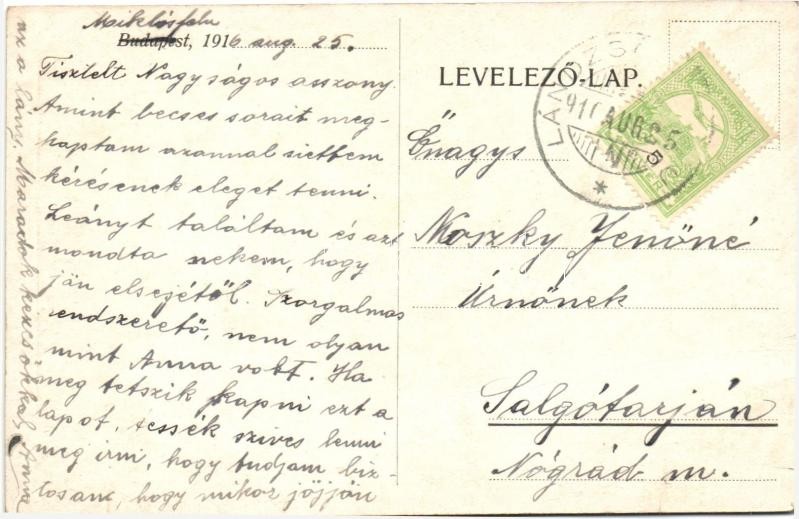 Miklósfalu
Budapest, 1916 aug 25.
Tisztelt Nagyságos asszony.
Amint becses sorait meg-
kaptam azonnal siettem
kérésenek eleget tenni.
Leányt találtam és azt
mondta nekem, hogy
ján elsejétől. Szorgalmas
rendszerető, nem olyan
mint Anna volt. Ha
meg tetszik kapni ezt a
lapot, tessék szives lenni
meg irni, hogy tudjam biz-
tosan, hogy mikor jöjjön
az a lány. Maradok kézcsókkal Anna
LEVELEZŐ-LAP.
LÁNDZS
916 AUG 25
N 5
Őnagys
Moszky Jenőné
Úrnőnek
Salgótarján
Nógrád m.